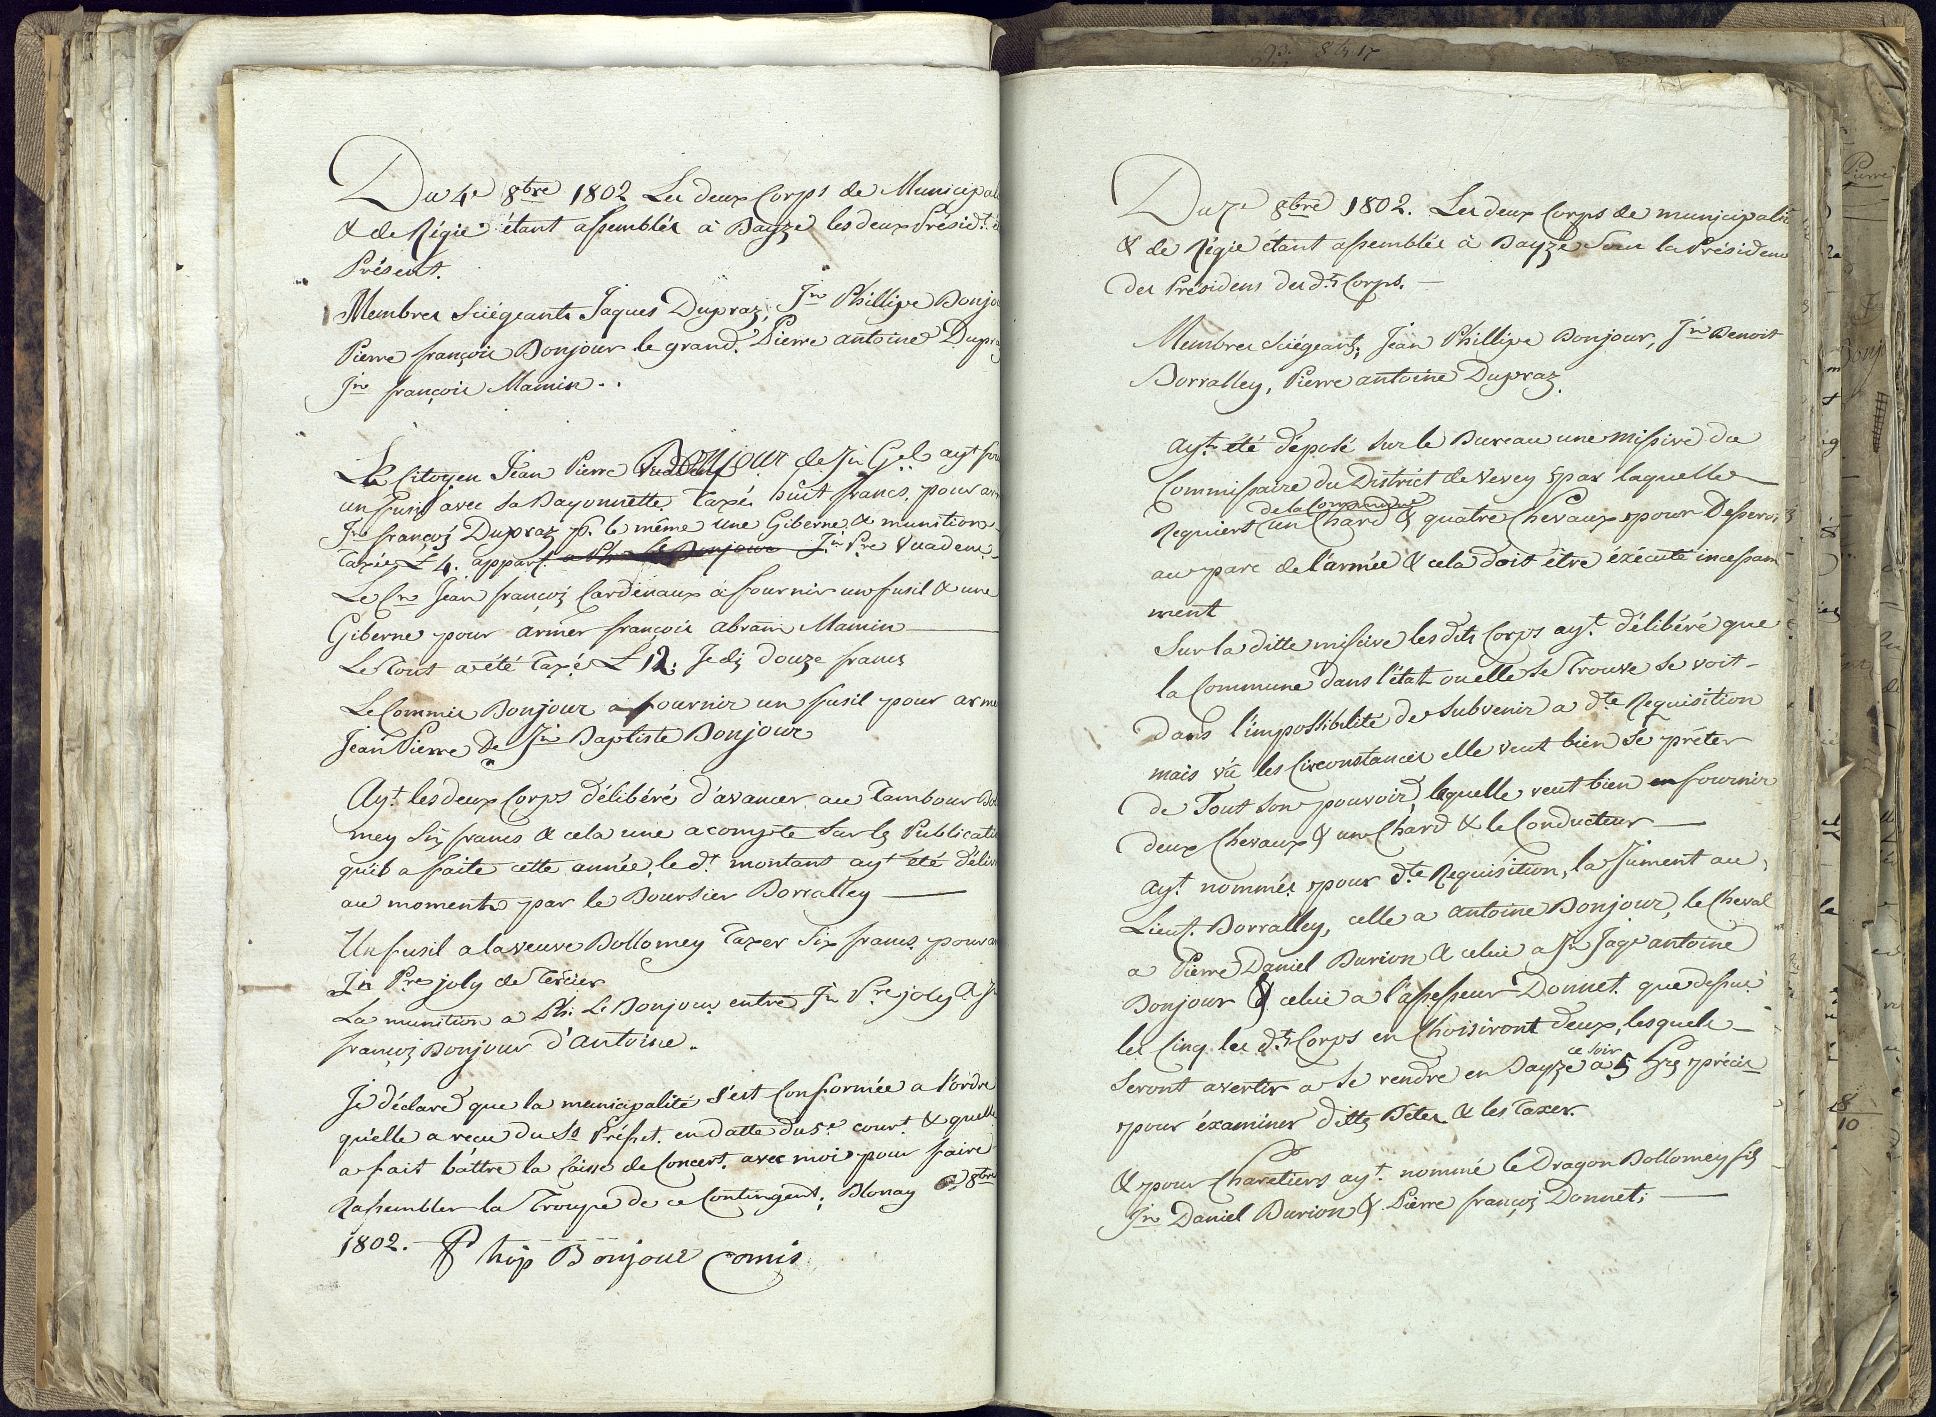 Du 4e 8bre 1802 Les deux Corps de Municipal
& de Régie étant assemblés à Bayze les deux Présidt. é
Présent.
Membres Siégeants Jaques Dupraz, Jn Phillipe Bonjo
Pierre françois Bonjour le grand. Pierre antoine Dupra
Jn françois Mamin..
Le Citoyen Jean Pierre Bonjour de Jn Gel ayt fou
un fusil avec sa Bayonnette, Taxé huit francs, pour ar
Jn françoi Dupraz, pr. le même une Giberne & munition
Taxées L 4. appart. Jn Pre Vuadens
Le Cn Jean françoi Cardinaux à fournir un fusil & une
Giberne pour armer françois abram Mamin
Le Tout a été Taxé L 12; Je dis douze francs
Le Commis Bonjour a fournir un fusil pour arme
Jean Pierre De Jn Baptiste Bonjour
Ayt. les deux Corps délibéré d'avancer au Tambour Bol
mey Six francs & cela une acompte Sur les Publicati
quil a faite cette année, le dt. montant ayt été déliv
au moment par le Boursier Borralley
Un fusil a la veuve Bollomey Taxer Six francs, pour a
Jn Pre joly de Tercier
La munition a Ph: Ls Bonjour entre Jn Pre joly & J
françoi Bonjour d'antoine.
Je déclare que la municipalité s'est Conformée a l'ordre
qu'elle a recu du Ss Préfet. en datte du 5e court. & quelle
a fait battre la Caisse de Concert. avec moi pour faire
Rassembler la Troupe de ce Contingent; Blonay 8bre
1802. Phip Bonjour Comis
93. 8 17
Du 7e 8bre 1802. Les deux Corps de municipalit
& de Régie étant assemblés à Bayze Sous la Présidenc
des Présidens des dts Corps.
Membres Siégeant; Jean Phillipe Bonjour, Jn Benoit
Borralley, Pierre antoine Dupraz.
ayt été déposé Sur le Bureau une missive du
Commissaire du District de Vevey par laquelle
de la Commune
Requiert un Chard & quatre Chevaux pour Desservir
au parc de l'armée & cela doit être éxécuté incessam
ment
Sur la ditte missive les dits Corps ayt. délibéré que
la Commune dans l'état ou elle se Trouve se voit
dans l'impossibilité de subvenir a dte Requisition
mais vû les Circonstances elle veut bien se prêter
de Tout son pouvoir, laquelle veut bien en fournir
deux Chevaux & un Chard & le Conducteur
ayt. nommés pour dte Requisition, la Jument au
Lieut. Borralley, celle a antoine Bonjour, le Cheval
a Pierre Daniel Burion & celui a Jn Jaqe antoine
Bonjour & celui a l'assesseur Donnet. que dessus
les Cinq. les dts Corps en Choisiront deux, lesquels
ce soir
Seront avertis a se rendre en Bayze a 5 hres précis
pour éxaminer dittes Bêtes & les Taxer.
& pour Charetiers ayt. nommé le Dragon Bollomey fils
Jn Daniel Burion & Pierre françoi Donnet;
Pierre